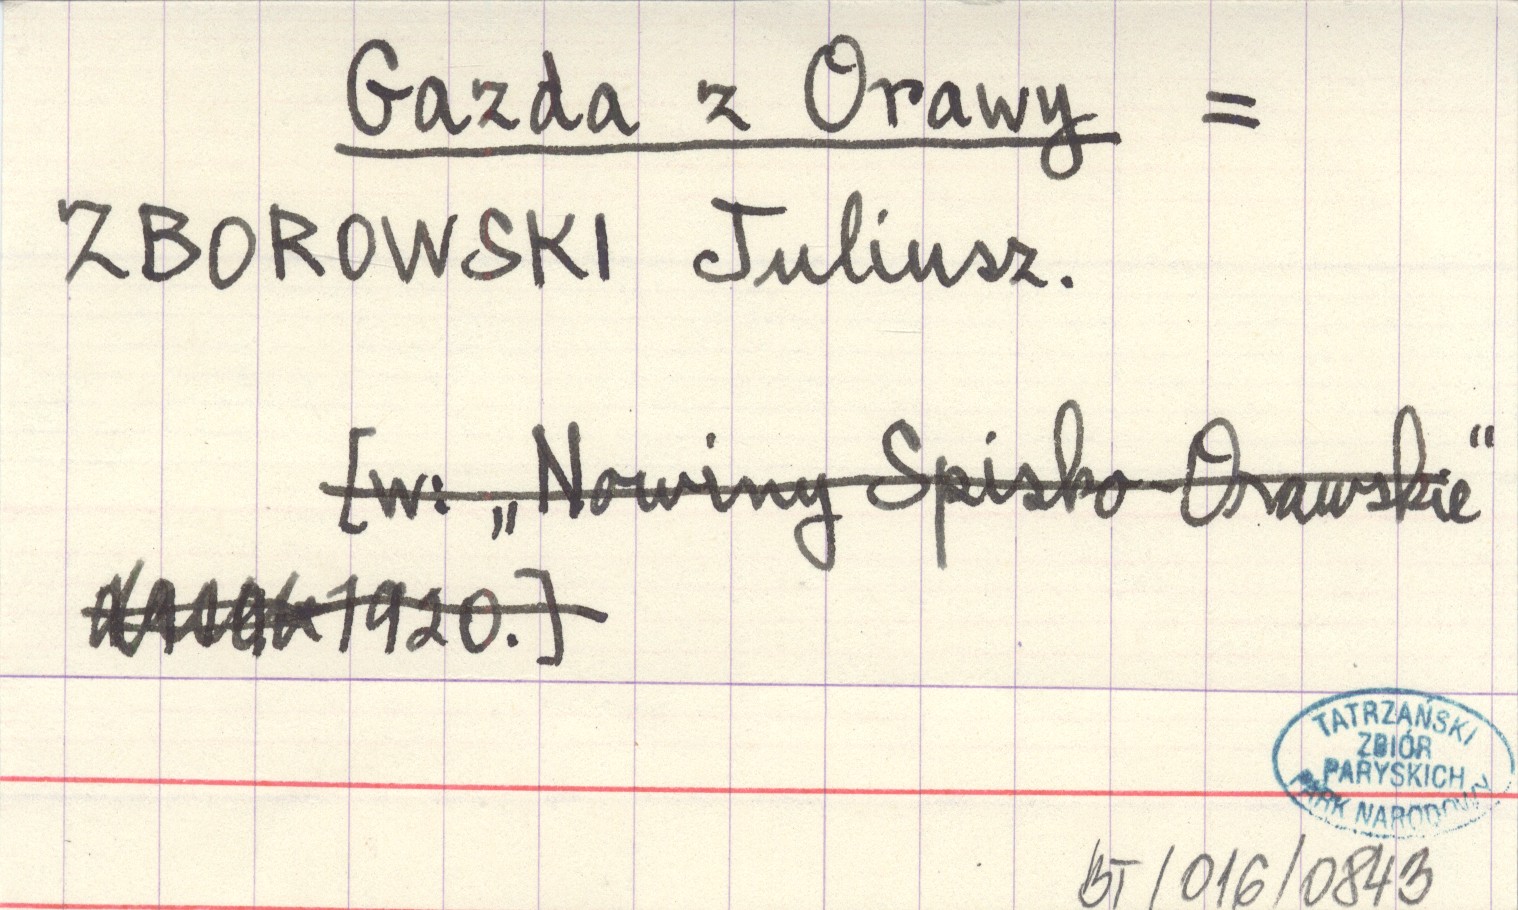 Gazda z Orawy =
ZBOROWSKI Juliusz.
[w: „Nowiny Spisko-Orawskie“
1920.]
TATRZAŃSKI
ZBIÓR
PARYSKICH
PARK NARODOWY
BT/016/0843